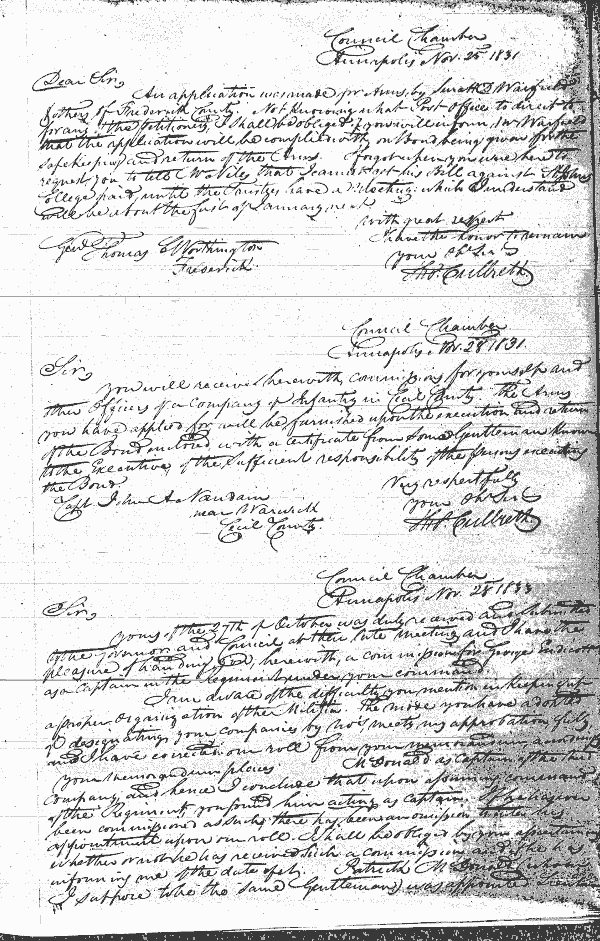 Council Chamber
Annapolis Nov. 25th 1831
Dear Sir,
An application was made for Arms, by Surratt D Warfield
& others of Frederick County. Not knowing what Post Office to direct to
for any of the petitioners, I shall be obliged if you will inform Mr Warfield
that the application will be complied with, on Bond being given for the
safekeeping and return of the Arms. I forgot when you were here to
request you to tell that I cannot get his Bill against St Johns
College paid, until the Trustees have a meeting which I understand
will be about the first of January next
with great respect
I have the honor to remain
your Obt Servt
Genl Thomas C Worthington
Frederick
Thos. Culbreth
Council Chamber
Annapolis Nov. 28 1831
Sir,
you will receive herewith, commissions for yourself and
the Officers of a Company of Infantry in Cecil County. The Arms
you have applied for will be furnished upon the execution and return
of the Bond enclosed with a certificate from some Gentleman known
to the Executive, of the sufficient responsibility of the persons executing
the Bond.
Very respectfully
Capt. John A
near Warwick
your Obt Servt
Cecil County
Thos. Culbreth
Council Chamber
Annapolis Nov. 28 183
Sir,
yours of the 27th of October was duly received and submitted
to the Governor and Council at their late meeting and I have the
pleasure of handing you, herewith, a commission for George Endicott
as a Captain in the Regiment under your command.
I am aware of the difficulty you mention in keeping up
a proper organization of the Militia. The mode you have adopted
of designating your companies by No's meets my approbation fully
and I have corrected our roll from your memorandum
your memorandum places McDonald as Captain of the
company, and hence I conclude that upon assuming command
of the Regiment you found him acting as Captain. If he has ever
been commissioned as such, there has been an omission his
appointment upon our roll. I shall be obliged by your ascertaining
whether or not he has received such a commission and if he has
informing me of the date of it. Patrick McDonald (whom
I suppose to be the same Gentleman) was appointed